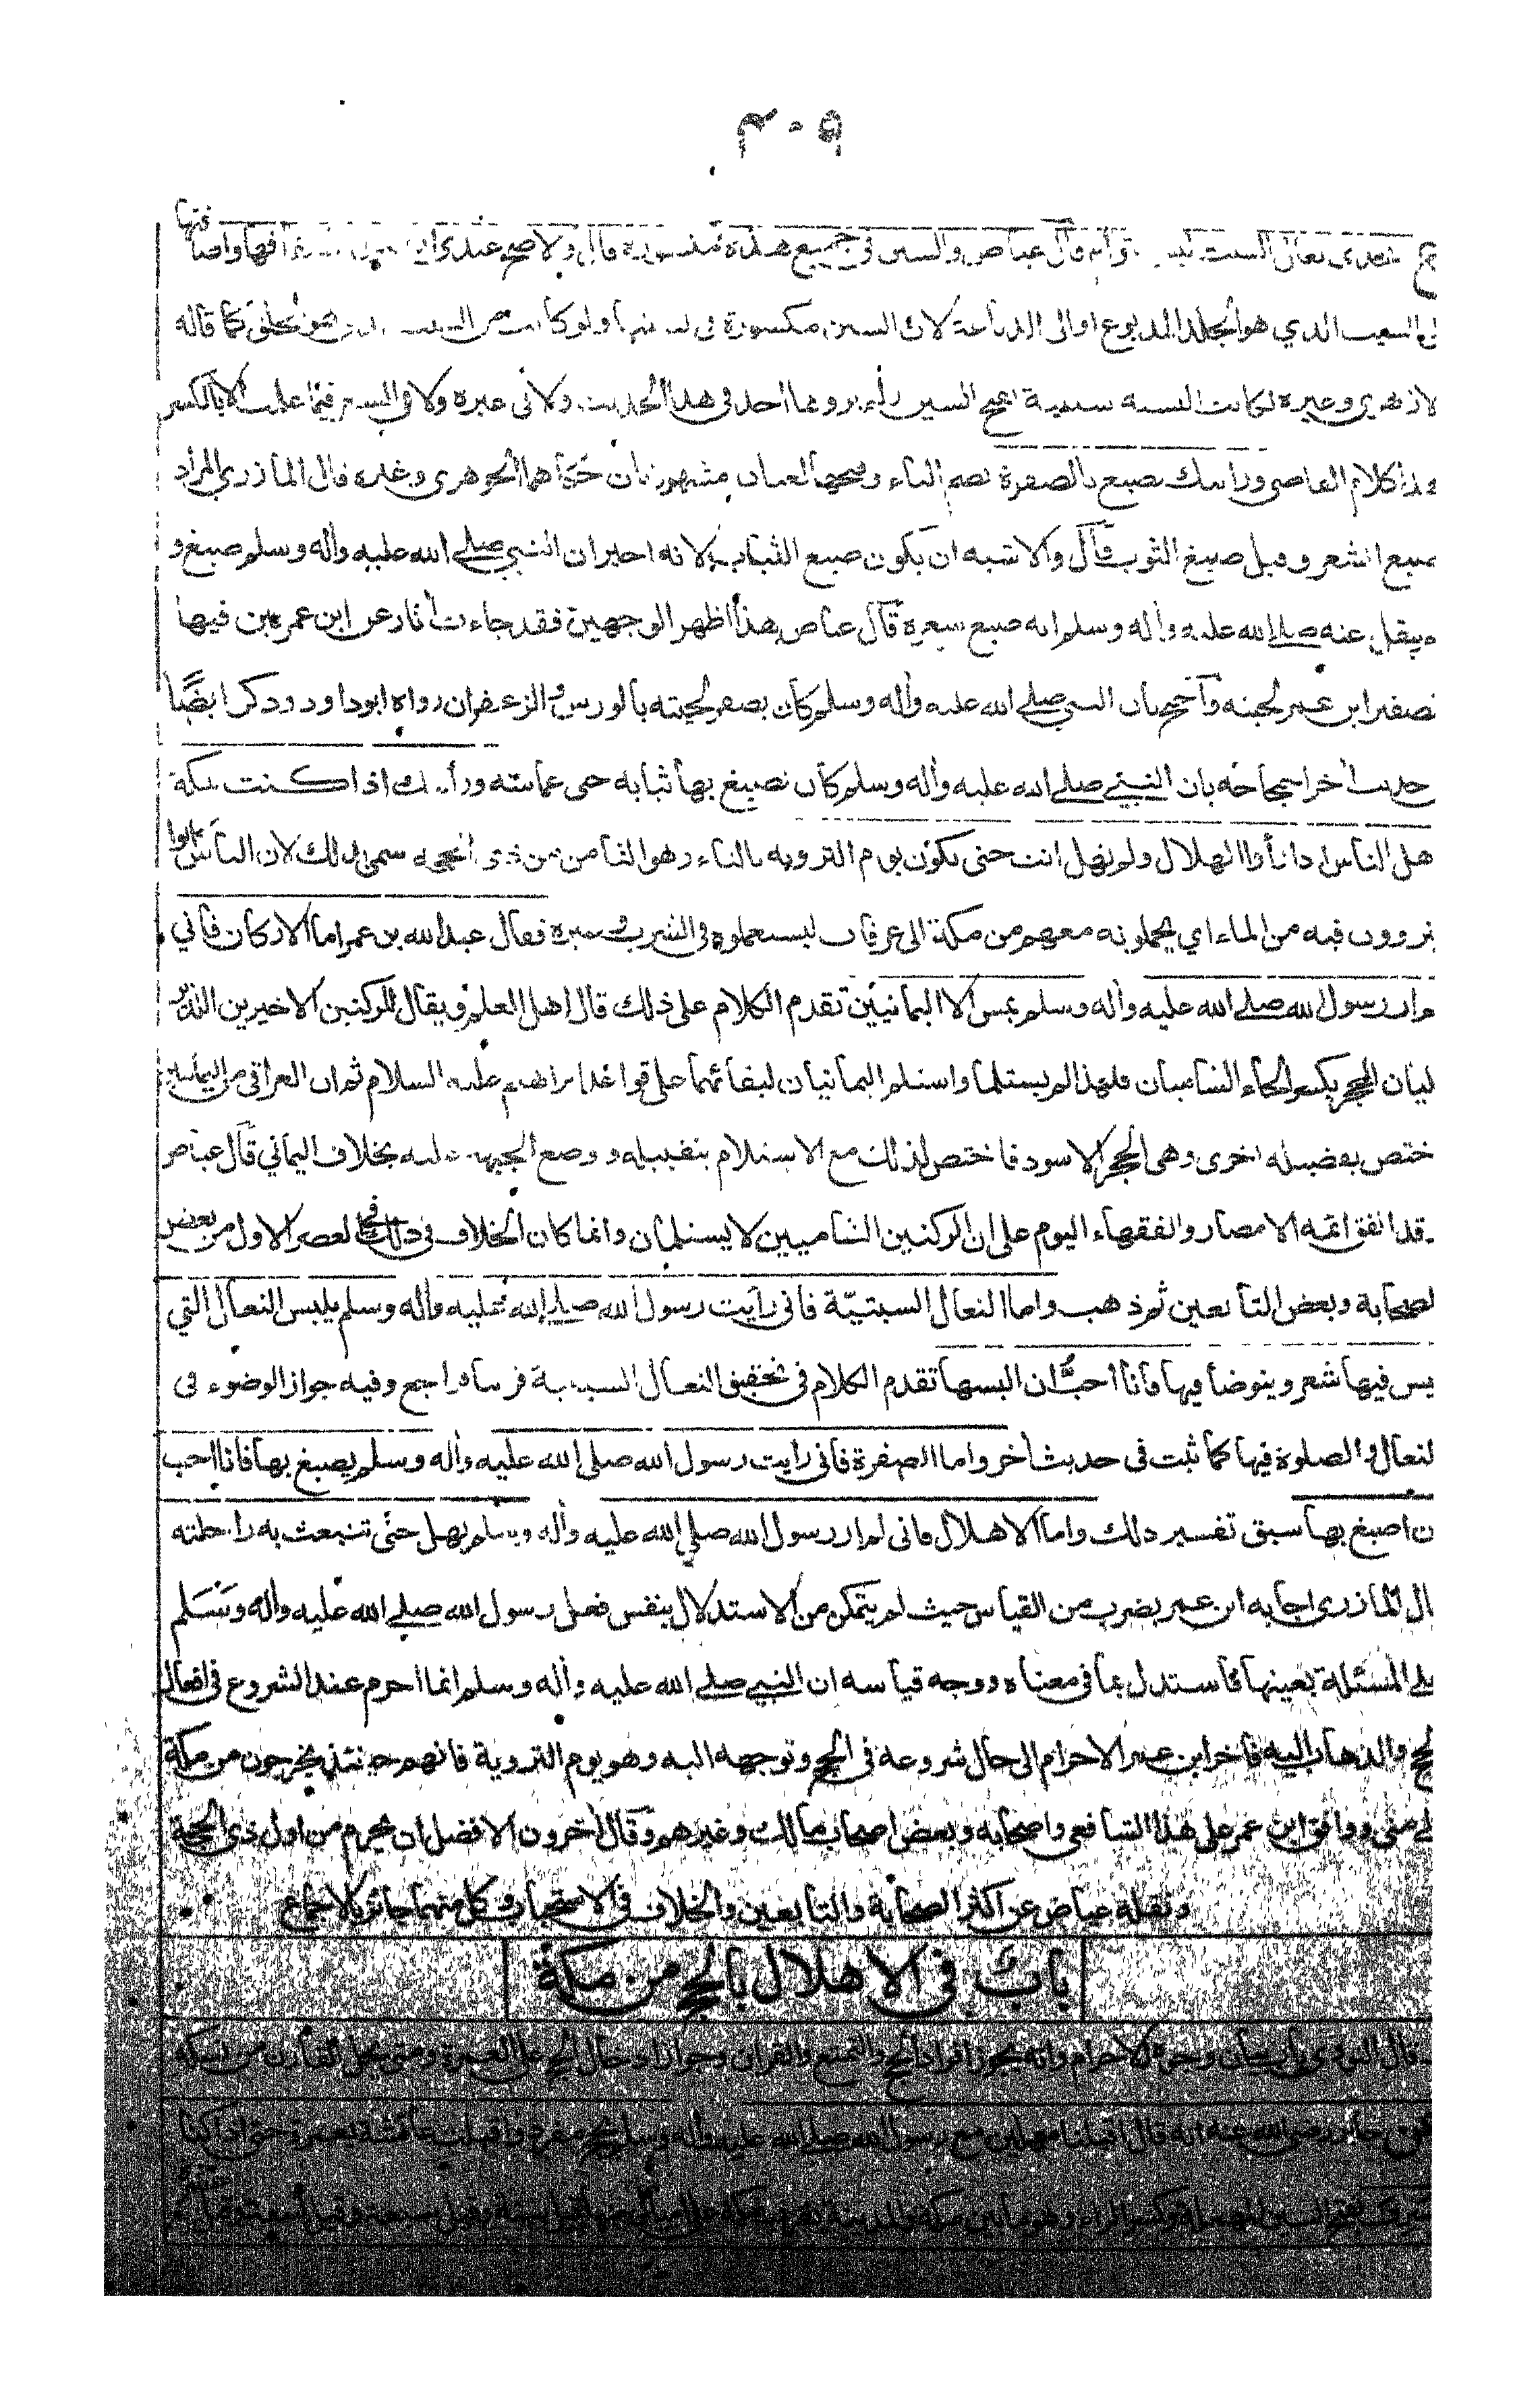 ٣٠٩
قال عياض والسين في جميع هذه مكسورة قال ولاصح عندي
الذي هو الجلد المدبوغ اوالى الدباغة لان السين مكسورة في ولو كانت من كما قاله
وغيره لكانت سبتية بفتح السين ولم يروها احد في هذا الحديث ولا في غيره ولا في الشعر فيما علمت الا بالكسر
كلام القاضي ورأيتك تصبغ بالصفرة بضم الباء وفتحها لغتان مشهورتان حكاهما الجوهري وغيره قال المازري المراد
صبغ الشعر وقيل صبغ الثوب قال والاشبه ان يكون صبغ الثياب لانه اخبر ان النبي صلے الله عليه واله وسلم صبغ و
ينقل عنه صلے الله عليه واله وسلم انه صبغ شعره قال عياض هذا اظهر الوجهين فقد جاءت اثار عن ابن عمر بين فيها
تصفير ابن عمر لحيته واحتج بان النبي صلے الله عليه واله وسلم كان يصفر لحيته بالورس والزعفران رواه ابوداود وذكر ايضًا
حديث اخر احتجاجه بان النبي صلے الله عليه واله وسلم كان يصبغ بها ثيابه حتى عمامته ورأيتك اذا كنت بمكة
هل الناس اذا رأوا الهلال ولم تهل انت حتى يكون يوم التروية بالتاء وهو الثامن من ذي الحجة سمي بذلك لان الناس كانوا
يتروون فيه من الماء اي يحملونه معهم من مكة الى عرفات ليستعملوه في الشرب وغيره فقال عبد الله بن عمر اما الاركان فاني
م ار رسول الله صلے الله عليه واله وسلم يمس الا اليمانيين تقدم الكلام على ذلك قال اهل العلم ويقال للركنين الاخيرين اللذين
ليان الحجر بكسر الحاء الشاميان فلهذا لم يستلما واستلم اليمانيان لبقائهما على قواعد ابراهيم عليه السلام ثم ان العراقي من اليمانيين
ختص بفضيلة اخرى وهي الحجر الاسود فاختص لذلك مع الاستلام بتقبيله ووضع الجبهة عليه بخلاف اليماني قال عياض
وقد اتفق ائمة الامصار والفقهاء اليوم على ان الركنين الشاميين لا يستلمان وانما كان الخلاف في ذلك في العصر الاول من بعض
لصحابة وبعض التابعين ثم ذهب واما النعال السبتيّة فاني رأيت رسول الله صلے الله عليه واله وسلم يلبس النعال التي
يس فيها شعر ويتوضأ فيها فأنا احبّ ان البسها تقدم الكلام في تحقيق النعال السبتية قريبا فراجع وفيه جواز الوضوء في
لنعال والصلوة فيها كما ثبت في حديث اخر واما الصفرة فاني رايت رسول الله صلى الله عليه واله وسلم يصبغ بها فانا احب
ن اصبغ بها سبق تفسير ذلك واما الاهلال فاني لم ار رسول الله صلي الله عليه واله وسلم يهل حتّى تنبعث به راحلته
ال المازري اجابه ابن عمر بضرب من القياس حيث لم يتمكن من الاستدلال بنفس فعل رسول الله صلے الله عليه واله وسلم
يلے المسئلة بعينها فاستدل بما في معناه ووجه قياسه ان النبي صلے الله عليه واله وسلم انما احرم عند الشروع في افعال
لحج والذهاب اليه فاخر ابن عمر الاحرام الى حال شروعه في الحج وتوجهه اليه وهو يوم التروية فانهم حينئذ يخرجون من مكة
لے منى ووافق ابن عمر على هذا الشافعي واصحابه وبعض اصحاب مالك وغيرهم وقال اخرون الافضل ان يحرم من اول ذي الحجة
ونقله عياض عن اكثر الصحابة والتابعين والخلاف في الاستحباب وكل منهما جائز بالاجماع
باب في الاهلال بالحج من مكة
قال النووي باب بيان وجوه الاحرام وانه يجوز افراد الحج والتمتع والقران وجواز ادخال الحج على العمرة ومتى يحل القارن من نسكه
عن جابر رضي الله عنه انه قال اقبلنا مهلين مع رسول الله صلے الله عليه واله وسلم بحج مفرد واقبلت عائشة بعمرة حتى اذا كنا
بسرف بفتح السين المهملة وكسر الراء وهو ما بين مكة والمدينة بقرب مكة على اميال منها قيل ستة وقيل سبعة وقيل تسعة وقيل